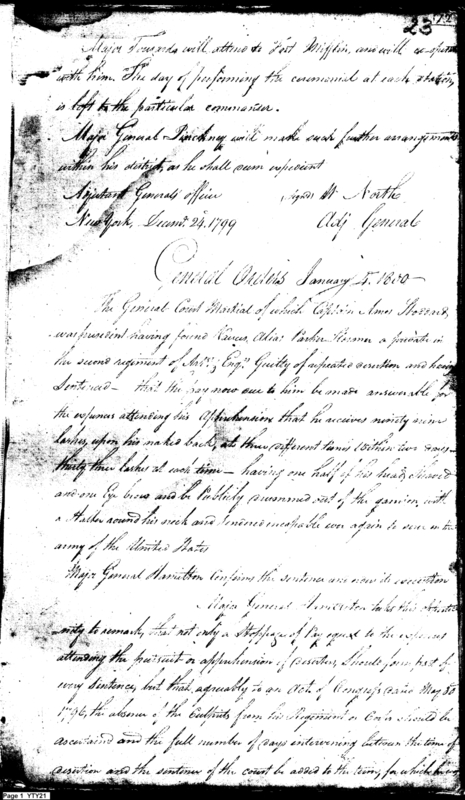 23
Major Tousards will attend to Fort Mifflin, and will co-operate
with him. The day of performing the ceremonial at each station,
is left to the particular commander.
Major General Pinckney will make such further arrangements
within his district, as he shall deem expedient
Adjutant General's office signed W. North
New York, Decemr. 24. 1799 Adj General
General Orders January 5. 1800
The General Court Martial of which Captain Amos Stodard,
was president having found alias Parker a private in
the second regiment of Art. & Eng. Guilty of repeated desertion and having
Sentenced - that the pay now due to him be made answerable for
the expences attending his Apprehension, that he receives ninety nine
lashes, upon his naked back, at three different times within two days -
thirty three lashes at each time - having one half of his head, shaved
and one Eye brow and be Publicly drummed out of the garrison, with
a Halter around his neck and rendered incapable ever again to serve in the
army of the United States
Major General Hamilton Confirms the sentence and now its execution
Major General Hamilton takes this
to remark, that not only a stoppage of Pay equal to the expences
attending the pursuit or apprehension of deserters, Should form part of
every sentence, but that, agreeably to an Act of Congress May 30
1796, the absence of the Culprits from his Regiment or Corps should be
ascertained and the full number of days intervening between the time of
desertion and the sentence of the court be added to the time, for which
Page 1 YTY21